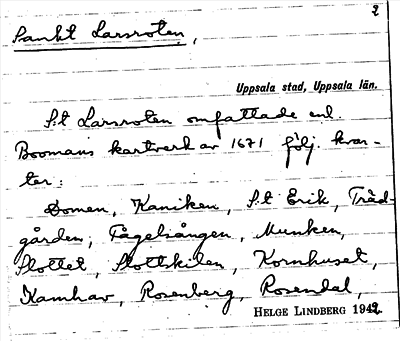 2
Sankt Larsroten,
Uppsala stad, Uppsala län.
S:t Larsroten omfattade enl.
Boomans kartverk av 1671 följ. kvar-
ter:
Domen, Kaniken, S:t Erik, Träd-
gården, Fågelsången, Munken,
Slottet, Slottskilen, Kornhuset,
Kamhav, Rosenberg, Rosendal,
HELGE LINDBERG 1942.